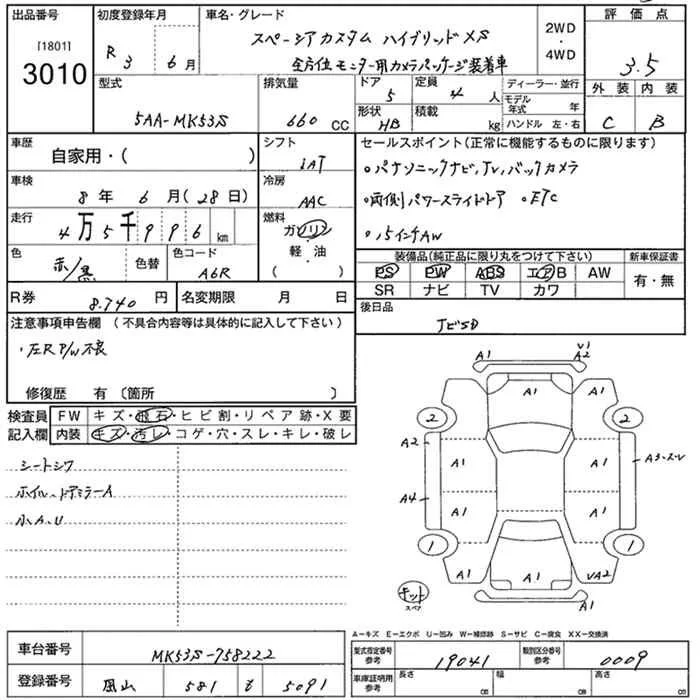 出品番号 初度登録年月 車名・グレード 2WD・4WD 評価点
[1801]
3010
R 3 6 月
スペーシアカスタム ハイブリッドXS
全方位モニター用カメラパッケージ装着車
3.5
型式 排気量 ドア 5 定員 4 人 ディーラー・並行 外装 内装
モデル年式 年
5AA-MK53S 660 CC 形状 HB 積載 kg ハンドル 左・右 C B
車歴 自家用・( ) シフト iAT セールスポイント(正常に機能するものに限ります)
・パナソニックナビ,TV,バックカメラ
車検 8 年 6 月(28日) 冷房 AAC
・両側パワースライドドア ・ETC
走行 4万5千996 km 燃料 ガソリン 軽・油 ( )
・15インチAW
色 赤/黒 色替 色コード A6R
装備品(純正品に限り丸をつけて下さい) 新車保証書
PS PW ABS エアB AW 有・無
SR ナビ TV カワ
R券 8.740 円 名変期限 月 日
後日品
ナビSD
注意事項申告欄 (不具合内容等は具体的に記入して下さい)
・左R P/W不良
修復歴 有 〔箇所 〕
検査員記入欄 FW キズ・飛石・ヒビ割・リペア跡・X要
内装 キズ・汚レ・コゲ・穴・スレ・キレ・破レ
シートシワ
ホイル、ドアミラーA
小A.U
A1 V1 A2
A1 A1
2 2
A2 A1 A1 A3・スレ
A4 A1 A1
1 1
A1 A1 VA2
キット
スペア
A1
A−キズ E−エクボ U−凹み W−補修跡 S−サビ C−腐食 XX−交換済
車台番号 MK53S-758222 型式指定番号 参考 19041 類別区分番号 参考 0009
登録番号 岡山 581 せ 5091 車庫証明用 参考 長さ cm 幅 cm 高さ cm